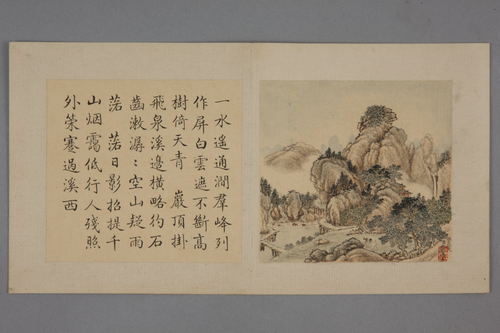 一水遥通澗羣峰列
作屏白雲遮不斷髙
樹倚天青 巖頂掛
飛泉溪邊橫略彴石
齒漱潺〻空山疑雨
落 落日影招提千
山烟靄低行人殘照
外策蹇過溪西